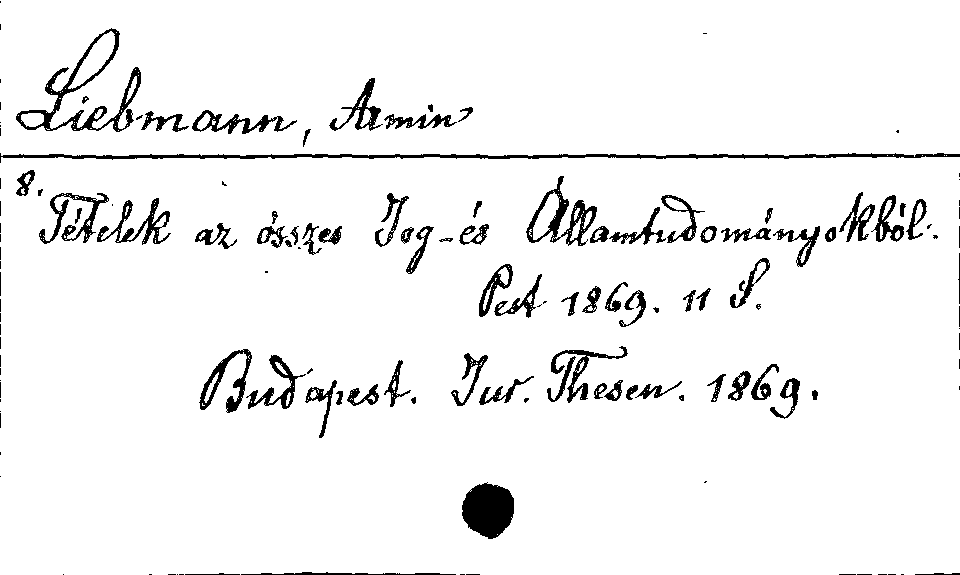 Liebmann, Armin
8. Tételek az összes Jog-és Államtudományokból.
Pest 1869. 11 S.
Budapest. Jur. Thesen. 1869.